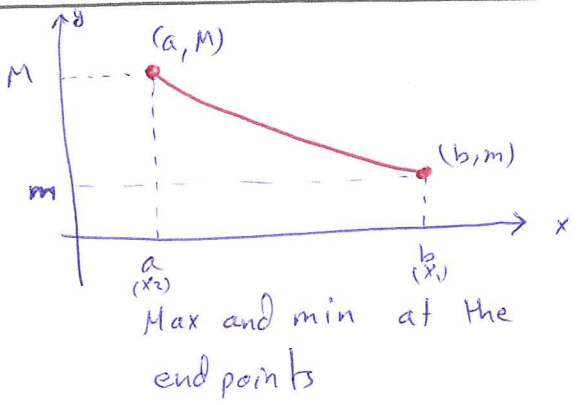 y
(a, M)
M
(b, m)
m
x
a
b
(x2)
(x1)
Max and min at the
end points